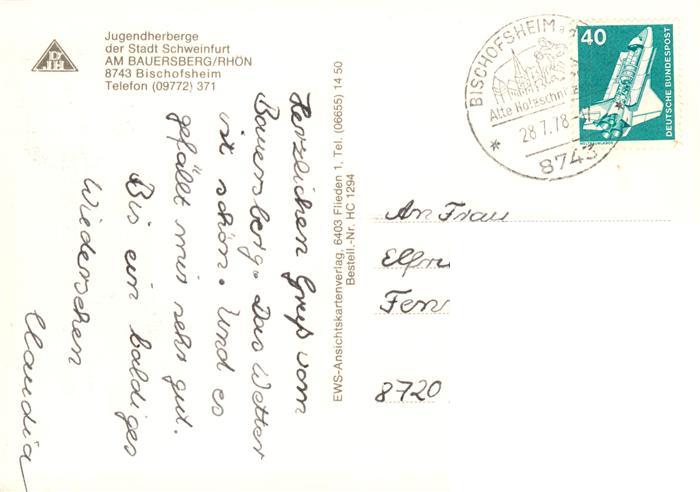 Jugendherberge
der Stadt Schweinfurt
AM BAUERSBERG/RHÖN
8743 Bischofsheim
Telefon (09772) 371
DJH
Herzlichen Gruß vom
Bauersberg. Das Wetter
ist schön. Und es
gefällt mir sehr gut.
Bis ein baldiges
Wiedersehen
Claudia
EWS-Ansichtskartenverlag, 6403 Flieden 1, Tel. (06655) 14 50
Bestell.-Nr. HC 1294
BISCHOFSHEIM
Alte Holzschni
28.7.78
8743
40
DEUTSCHE BUNDESPOST
An Frau
Elfri
Fen
8720